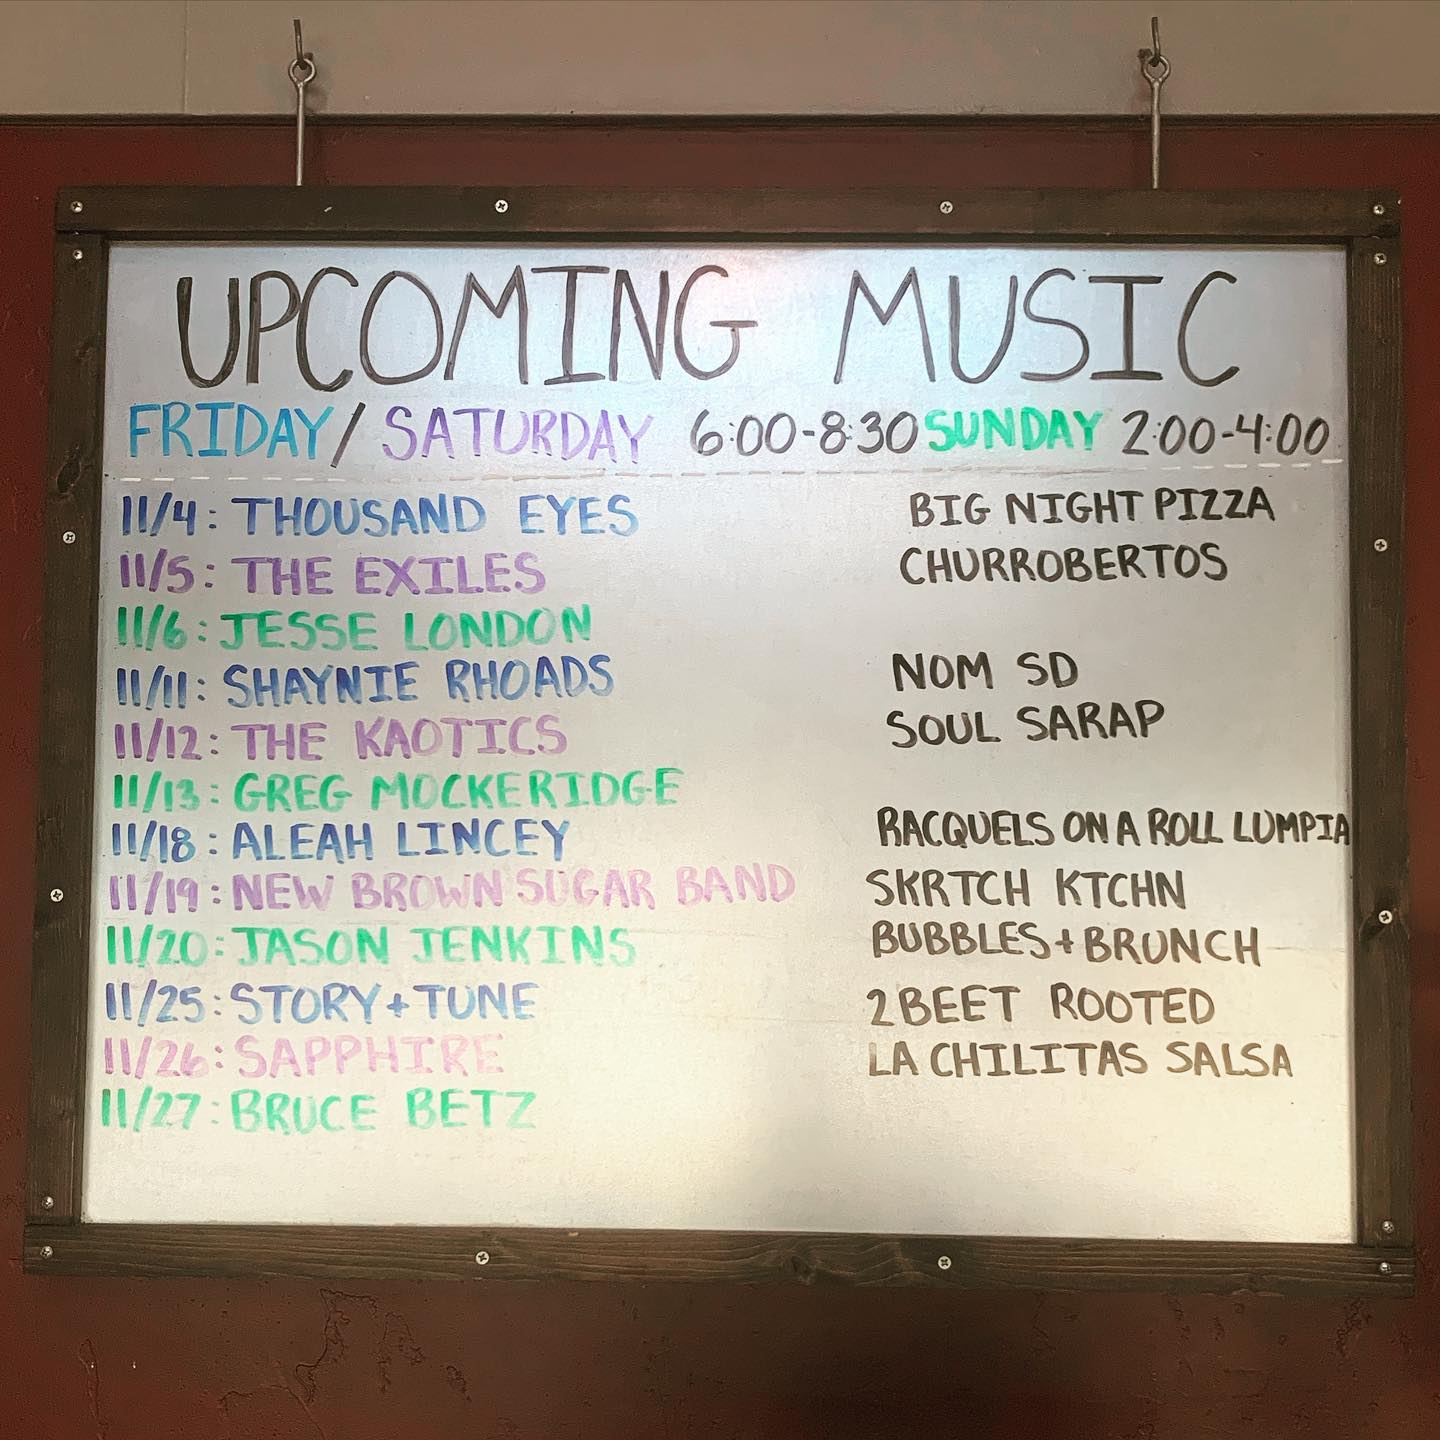 UPCOMING MUSIC
FRIDAY/SATURDAY 6:00-8:30 SUNDAY 2:00-4:00
11/4: THOUSAND EYES BIG NIGHT PIZZA
11/5: THE EXILES CHURROBERTOS
11/6: JESSE LONDON
11/11: SHAYNIE RHOADS NOM SD
11/12: THE KAOTICS SOUL SARAP
11/13: GREG MOCKERIDGE
11/18: ALEAH LINCEY RACQUELS ON A ROLL LUMPIA
11/19: NEW BROWN SUGAR BAND SKRTCH KTCHN
11/20: JASON JENKINS BUBBLES+BRUNCH
11/25: STORY+TUNE 2 BEET ROOTED
11/26: SAPPHIRE LA CHILITAS SALSA
11/27: BRUCE BETZ